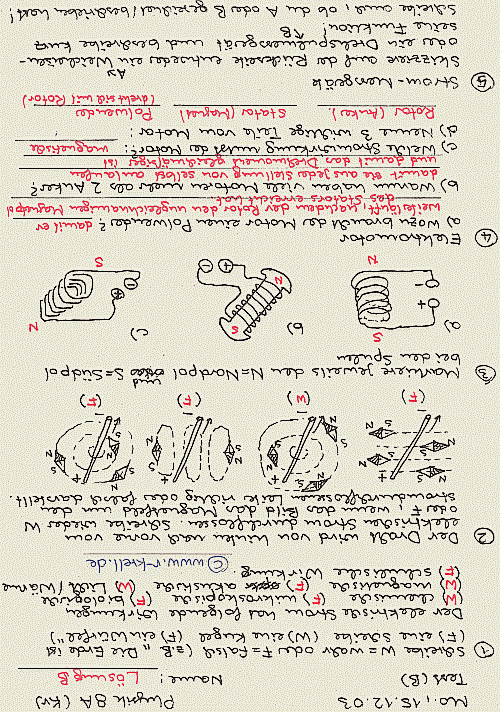 Mo., 15.12.03 Physik 8A (Kr)
Test (B) Name: Lösung B
① Schreibe W = wahr oder F = falsch (z.B. "Die Erde ist
(F) eine Scheibe (W) eine Kugel (F) ein Würfel")
Der elektrische Strom hat folgende Wirkungen
(W) chemische (F) mikroskopische (F) biologische
(W) magnetische (F) akustische (W) Licht/Wärme
(F) schulische Wirkung.
© www.r-krell.de
② Der Draht wird von hinten nach vorne vom
elektrischen Strom durchflossen. Schreibe wieder W
oder F, wenn das Bild das Magnetfeld um den
stromdurchflossenen Leiter richtig oder falsch darstellt.
(F) (W) (F) (F)
③ Markiere jeweils den N=Nordpol und S=Südpol
bei den Spulen
a) b) c)
S S N
N N S
④ Elektromotor
a) Wozu braucht der Motor einen Polwender? damit er
weiterläuft, nachdem der Rotor den ungleichnamigen Magnetpol
des Stators erreicht hat
b) Warum haben viele Motoren mehr als 2 Anker?
damit sie aus jeder Stellung von selbst anlaufen
und damit das Drehmoment gleichmäßiger ist
c) Welche Stromwirkung nutzt der Motor? magnetische
d) Nenne 3 wichtige Teile vom Motor:
Rotor (Anker) Stator (Magnet) Polwender
(dreht sich mit Rotor)
⑤ Strom-Messgerät
Skizziere auf der Rückseite entweder ein Weicheisen-
oder ein Drehspulmessgerät und beschreibe kurz
seine Funktion!
Schreibe auch, ob du A oder B gezeichnet/beschrieben hast!